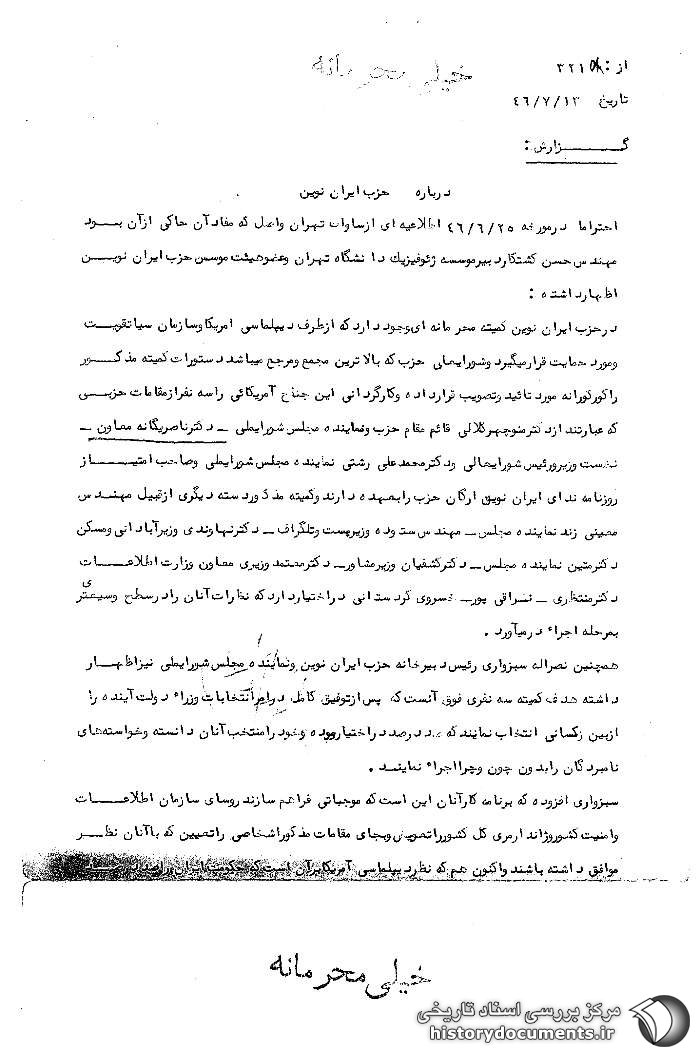 خیلی محرمانه
از : ۳۲۱
تاریخ ۴۶/۷/۱۳
گـــزارش :
درباره حزب ایران نوین
احتراما درمورخه ۴۶/۶/۲۵ اطلاعیه ای ازساواک تهران واصل که مفادآن حاکی ازآن بـود
مهندس حسن کشتکاردبیرموسسه ژئوفیزیک دانشگاه تهران وعضوهیئت موسس حزب ایران نویـن
اظهارداشته :
درحزب ایران نوین کمیته محرمانه ای وجود دارد که ازطرف دیپلماسی امریکاوسازمان سیا تقویـت
ومورد حمایت قرارمیگیرد وشورایعالی حزب که بالاترین مجمع ومرجع میباشد دستورات کمیته مذکـور
راکورکورانه مورد تائید وتصویب قرارداده وکارگردانی این جناح آمریکائی راسه نفرازمقامات حزبـی
که عبارتند ازدکترمنوچهرکلالی قائم مقام حزب ونماینده مجلس شورایملی ــ دکترناصریگانه معاون ــ
نخست وزیرورئیس شورایعالی ودکترمحمدعلی رشتی نماینده مجلس شورایملی وصاحب امتیـاز
روزنامه ندای ایران نوین ارگان حزب رابعهده دارند وکمیته مذکوردسته دیگری ازقبیل مهنـدس
معینی زند نماینده مجلس ــ مهندس ستوده وزیرپست وتلگراف ــ دکترنهاوندی وزیرآبادانی ومسکن
دکترمتین نماینده مجلس ــ دکترکشفیان وزیرمشاور ــ دکترمعتمد وزیری معاون وزارت اطلاعـات
دکترمنتظری ــ نراقی پور ــ خسروی کردستانی دراختیاردارد که نظارات آنان رادرسطح وسیعتری
بمرحله اجراء درمیآورد .
همچنین نصراله سبزواری رئیس دبیرخانه حزب ایران نوین ونماینده مجلس شورایملی نیزاظهـار
داشته هدف کمیته سه نفری فوق آنست که پس ازتوفیق کامل درامرانتخابات وزراء دولت آینده را
ازبین کسانی انتخاب نمایند که صد درصد دراختیاربوده وخود رامنتخب آنان دانسته وخواسته‌های
نامبردگان رابدون چون وچرااجراء نماینـد .
سبزواری افزوده که برنامه کارآنان این است که موجباتی فراهم سازند روسای سازمان اطلاعـات
وامنیت کشوروژاندارمری کل کشورراتعویض وبجای مقامات مذکوراشخاصی راتعیین که باآنان نظـر
موافق داشته باشند واکنون هم که نظردیپلماسی آمریکابرآن است که
خیلی محرمانه
مرکز بررسی اسناد تاریخی
historydocuments.ir